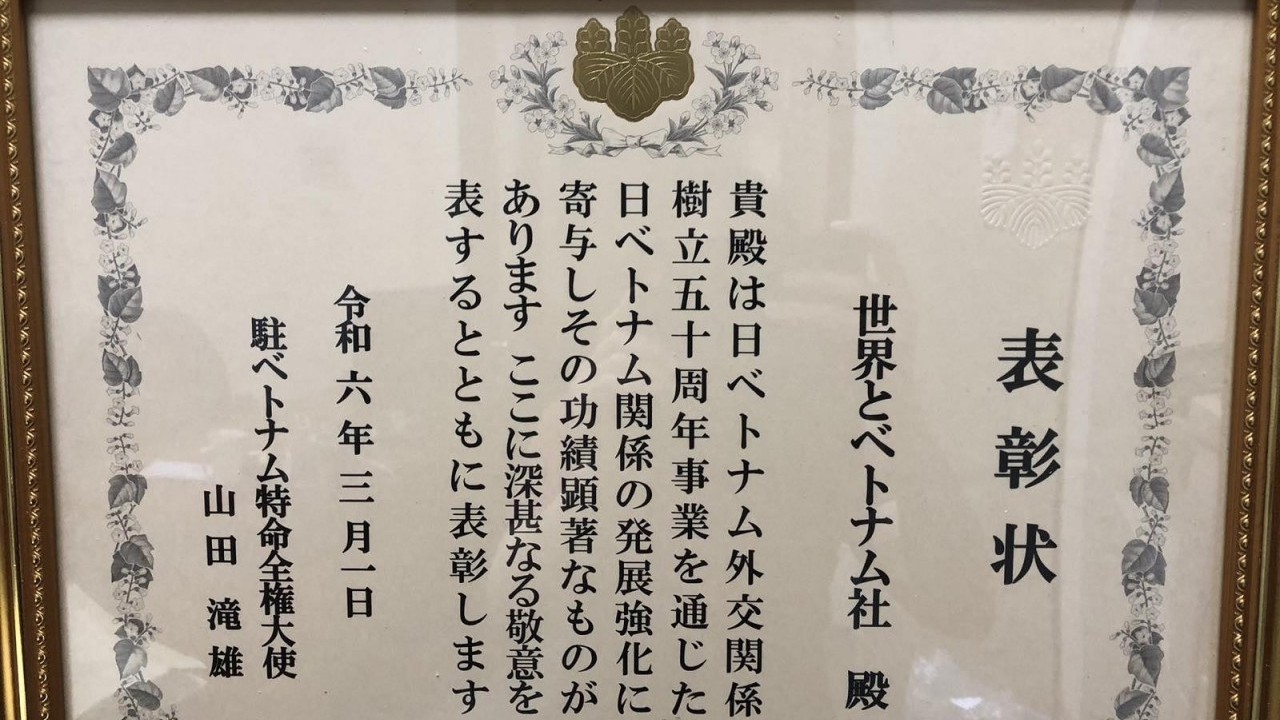 表彰状
世界とベトナム社 殿
貴殿は日ベトナム外交関係
樹立五十周年事業を通じた
日ベトナム関係の発展強化に
寄与しその功績顕著なものが
あります ここに深甚なる敬意を
表するとともに表彰します
令和六年三月一日
駐ベトナム特命全権大使
山田 滝雄